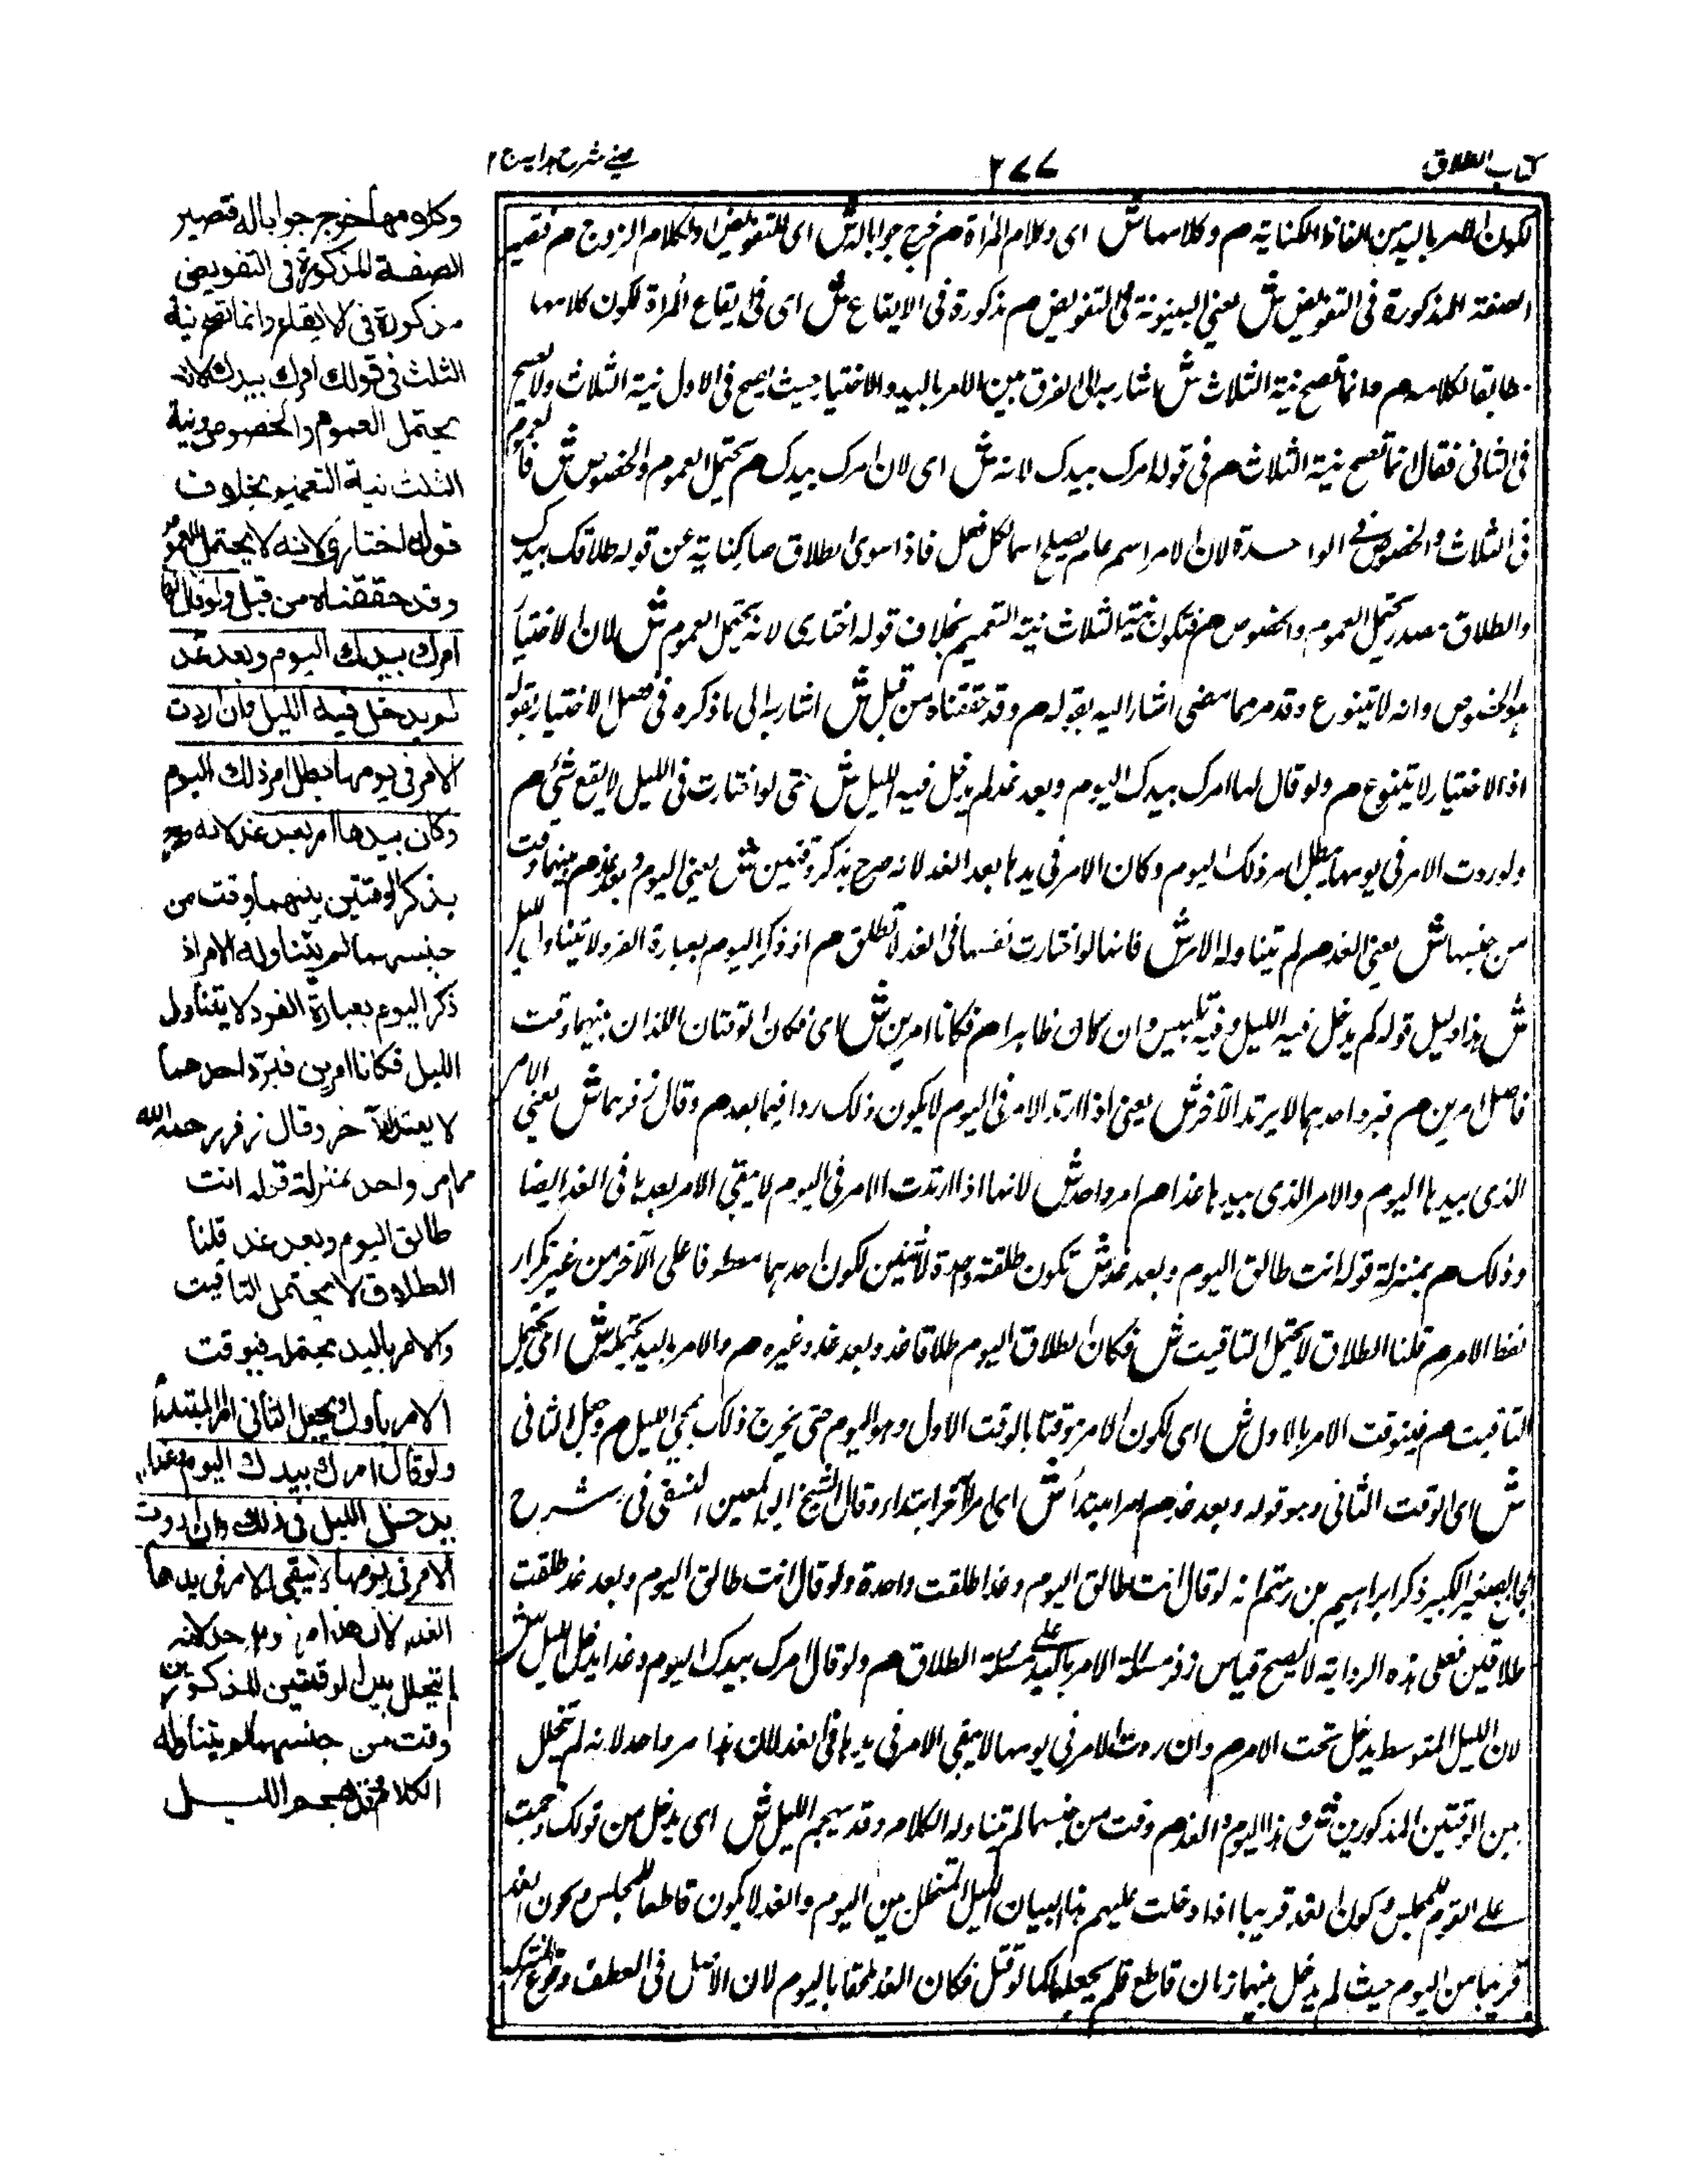 كتاب الطلاق
٢٧٧
عينى شرح هدايه ج ٢
لكون الامر باليد من الفاظ الكناية م وكلامها ش اى وكلام المراة م خرج جوابا له ش اى للتفويض او لكلام الزوج م فتصير
الصفة المذكورة فى التفويض ش يعنى البينونة فى التفويض م مذكورة فى الايقاع ش اى فى ايقاع المراة لكون كلامها
مطابقا لكلامه م وانما تصح نية الثلاث ش اشار به الى الفرق بين الامر باليد والاختيار حيث يصح فى الاول نية الثلاث ولا يصح
فى الثانى فقال انما تصح نية الثلاث م فى قوله امرك بيدك لانه ش اى لان امرك بيدك م يحتمل العموم والخصوص ش فالعموم
فى الثلاث والخصوص فى الواحدة لان الامر اسم عام يصلح اسما لكل فعل فاذا نوى الطلاق صار كناية عن قوله طلاقك بيدك
والطلاق مصدر يحتمل العموم والخصوص م فتكون نية الثلاث نية التعميم بخلاف قوله اختارى لانه لا يحتمل العموم ش لان الاختيار
هو الخصوص وانه لا يتنوع وقد مر مما مضى اشار اليه بقوله م وقد حققناه من قبل ش اشار به الى ما ذكره فى فصل الاختيار بقوله
اذ الاختيار لا يتنوع م ولو قال لها امرك بيدك اليوم وبعد غد لم يدخل فيه الليل ش حتى لو اختارت فى الليل لا يقع شئ م
ولو ردت الامر فى يومها يبطل امر ذلك اليوم وكان الامر فى يدها بعد الغد لانه صرح بذكر وقتين ش يعنى اليوم وبعد غد م بينهما وقت
من جنسها ش يعنى الغد م لم يتناوله الامر ش فانها لو اختارت نفسها فى الغد لا تطلق م اذ ذكر اليوم بعبارة الفرد لا يتناول الليل
ش هذا دليل قوله لم يدخل فيه الليل وفيه تلبيس وان كان ظاهرا م فكانا امرين ش اى فكان الوقتان اللذان بينهما وقت
فاصل امرين م فبرد احدهما لا يرتد الآخر ش يعنى اذا ارتد الامر فى اليوم لا يكون ذلك ردا فيما بعد م وقال زفر هما ش يعنى الامر
الذى بيدها اليوم والامر الذى بيدها غدا م امر واحد ش لانها اذا ارتدت الامر فى اليوم لا يبقى الامر بعدها فى الغد ايضا
وذلك م بمنزلة قوله انت طالق اليوم وبعد غد ش تكون طلقة واحدة لا ثنتين لكون احدهما معطوفا على الآخر من غير تكرار
لفظ الامر م قلنا الطلاق لا يحتمل التاقيت ش فكان الطلاق اليوم طلاقا غد وبعد غد وغيره م والامر باليد يحتمله ش اى يحتمل
التاقيت م فيتوقت الامر بالاول ش اى لكون الامر موقتا بالوقت الاول وهو اليوم حتى يخرج ذلك بمجئ الليل م وجعل الثانى
ش اى الوقت الثانى وهو قوله وبعد غد م امرا مبتدأ ش اى امرا آخر ابتداء وقال الشيخ ابو المعين النسفى فى شرح
الجامع الصغير الكبير ذكر ابراهيم بن رستم انه لو قال انت طالق اليوم وغدا طلقت واحدة ولو قال انت طالق اليوم وبعد غد طلقت
طلاقين فعلى هذه الرواية لا يصح قياس زفر مسئلة الامر باليد على مسئلة الطلاق م ولو قال امرك بيدك اليوم وغدا يدخل الليل ش
لان الليل المتوسط يدخل تحت الامر م وان ردت الامر فى يومها لا يبقى الامر فى يدها فى الغد لان هذا امر واحد لانه لم يتخلل
بين الوقتين المذكورين ش وهذا اليوم والغد م وقت من جنسهما لم يتناوله الكلام وقد يهجم الليل ش اى يدخل من قولك هجمت
على القوم المجلس وكون الغد قريبا اذا دخلت عليهم هذا البيان الليل المتخلل من اليوم والغد لا يكون قاطعا للمجلس م كون الغد
قريبا من اليوم حيث لم يدخل بينهما زمان قاطع فلم يجعلها كما لو قتل فكان الغد ملحقا باليوم لان الاصل فى العطف وقوع الشركة
وكلامها خرج جوابا له فتصير
الصفة المذكورة فى التفويض
مذكورة فى الايقاع وانما تصح نية
الثلث فى قولك امرك بيدك لانه
يحتمل العموم والخصوص ونية
الثلث نية التعميم بخلاف
قوله اختارى لانه لا يحتمل العموم
وقد حققناه من قبل ولو قال لها
امرك بيدك اليوم وبعد غد
لم يدخل فيه الليل وان ردت
الامر فى يومها بطل امر ذلك اليوم
وكان بيدها امر بعد غد لانه صرح
بذكر الوقتين بينهما وقت من
جنسهما لم يتناوله الامر اذ
ذكر اليوم بعبارة الفرد لا يتناول
الليل فكانا امرين فبرد احدهما
لا يرتد الآخر وقال زفر رحمه الله
هما امر واحد بمنزلة قوله انت
طالق اليوم وبعد غد قلنا
الطلاق لا يحتمل التاقيت
والامر باليد يحتمله فيوقت
الامر بالاول ويجعل الثانى امرا مبتدأ
ولو قال امرك بيدك اليوم وغدا
يدخل الليل فى ذلك وان ردت
الامر فى يومها لا يبقى الامر فى يدها
الغد لان هذا امر واحد لانه
لم يتخلل بين الوقتين المذكورين
وقت من جنسهما لم يتناوله
الكلام وقد يهجم الليل